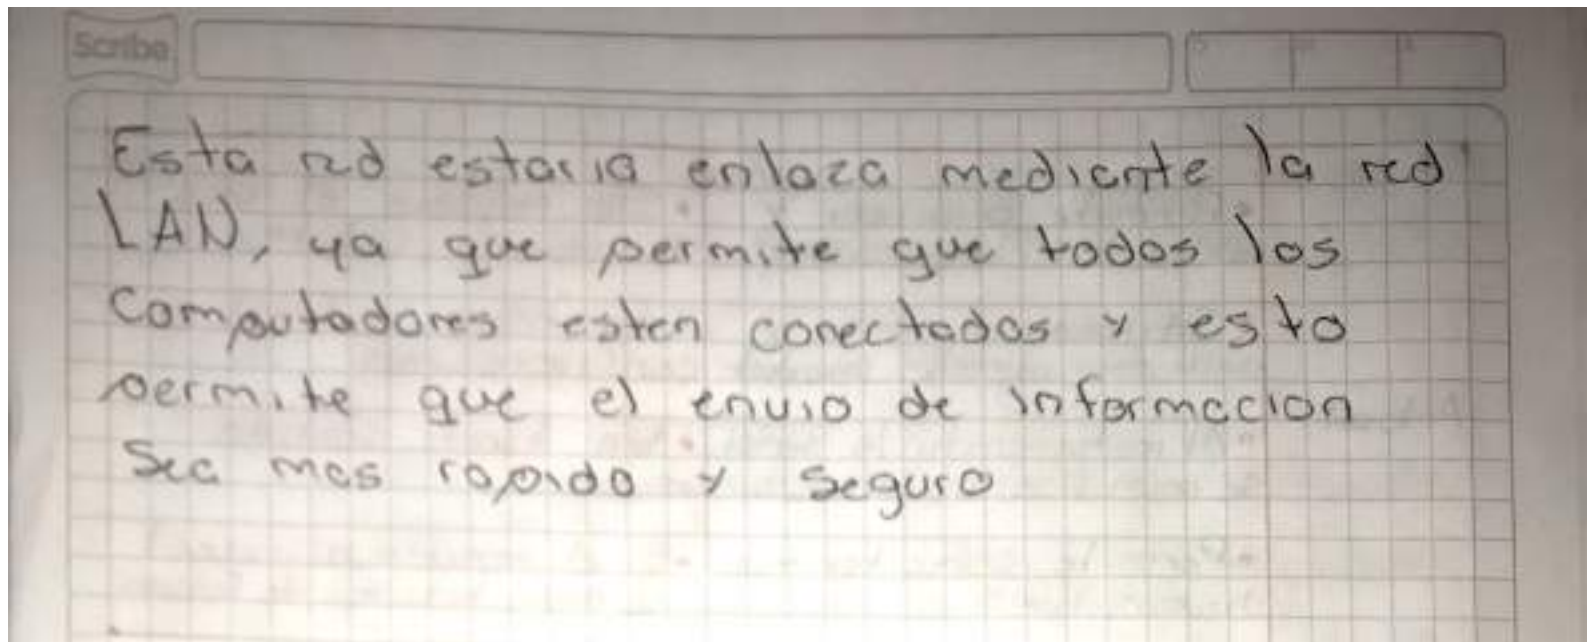 Scribe
Esta red estaria enlaza mediante la red
LAN, ya que permite que todos los
Computadores esten conectados y esto
permite que el envio de informacion
Sea mas rapido y Seguro